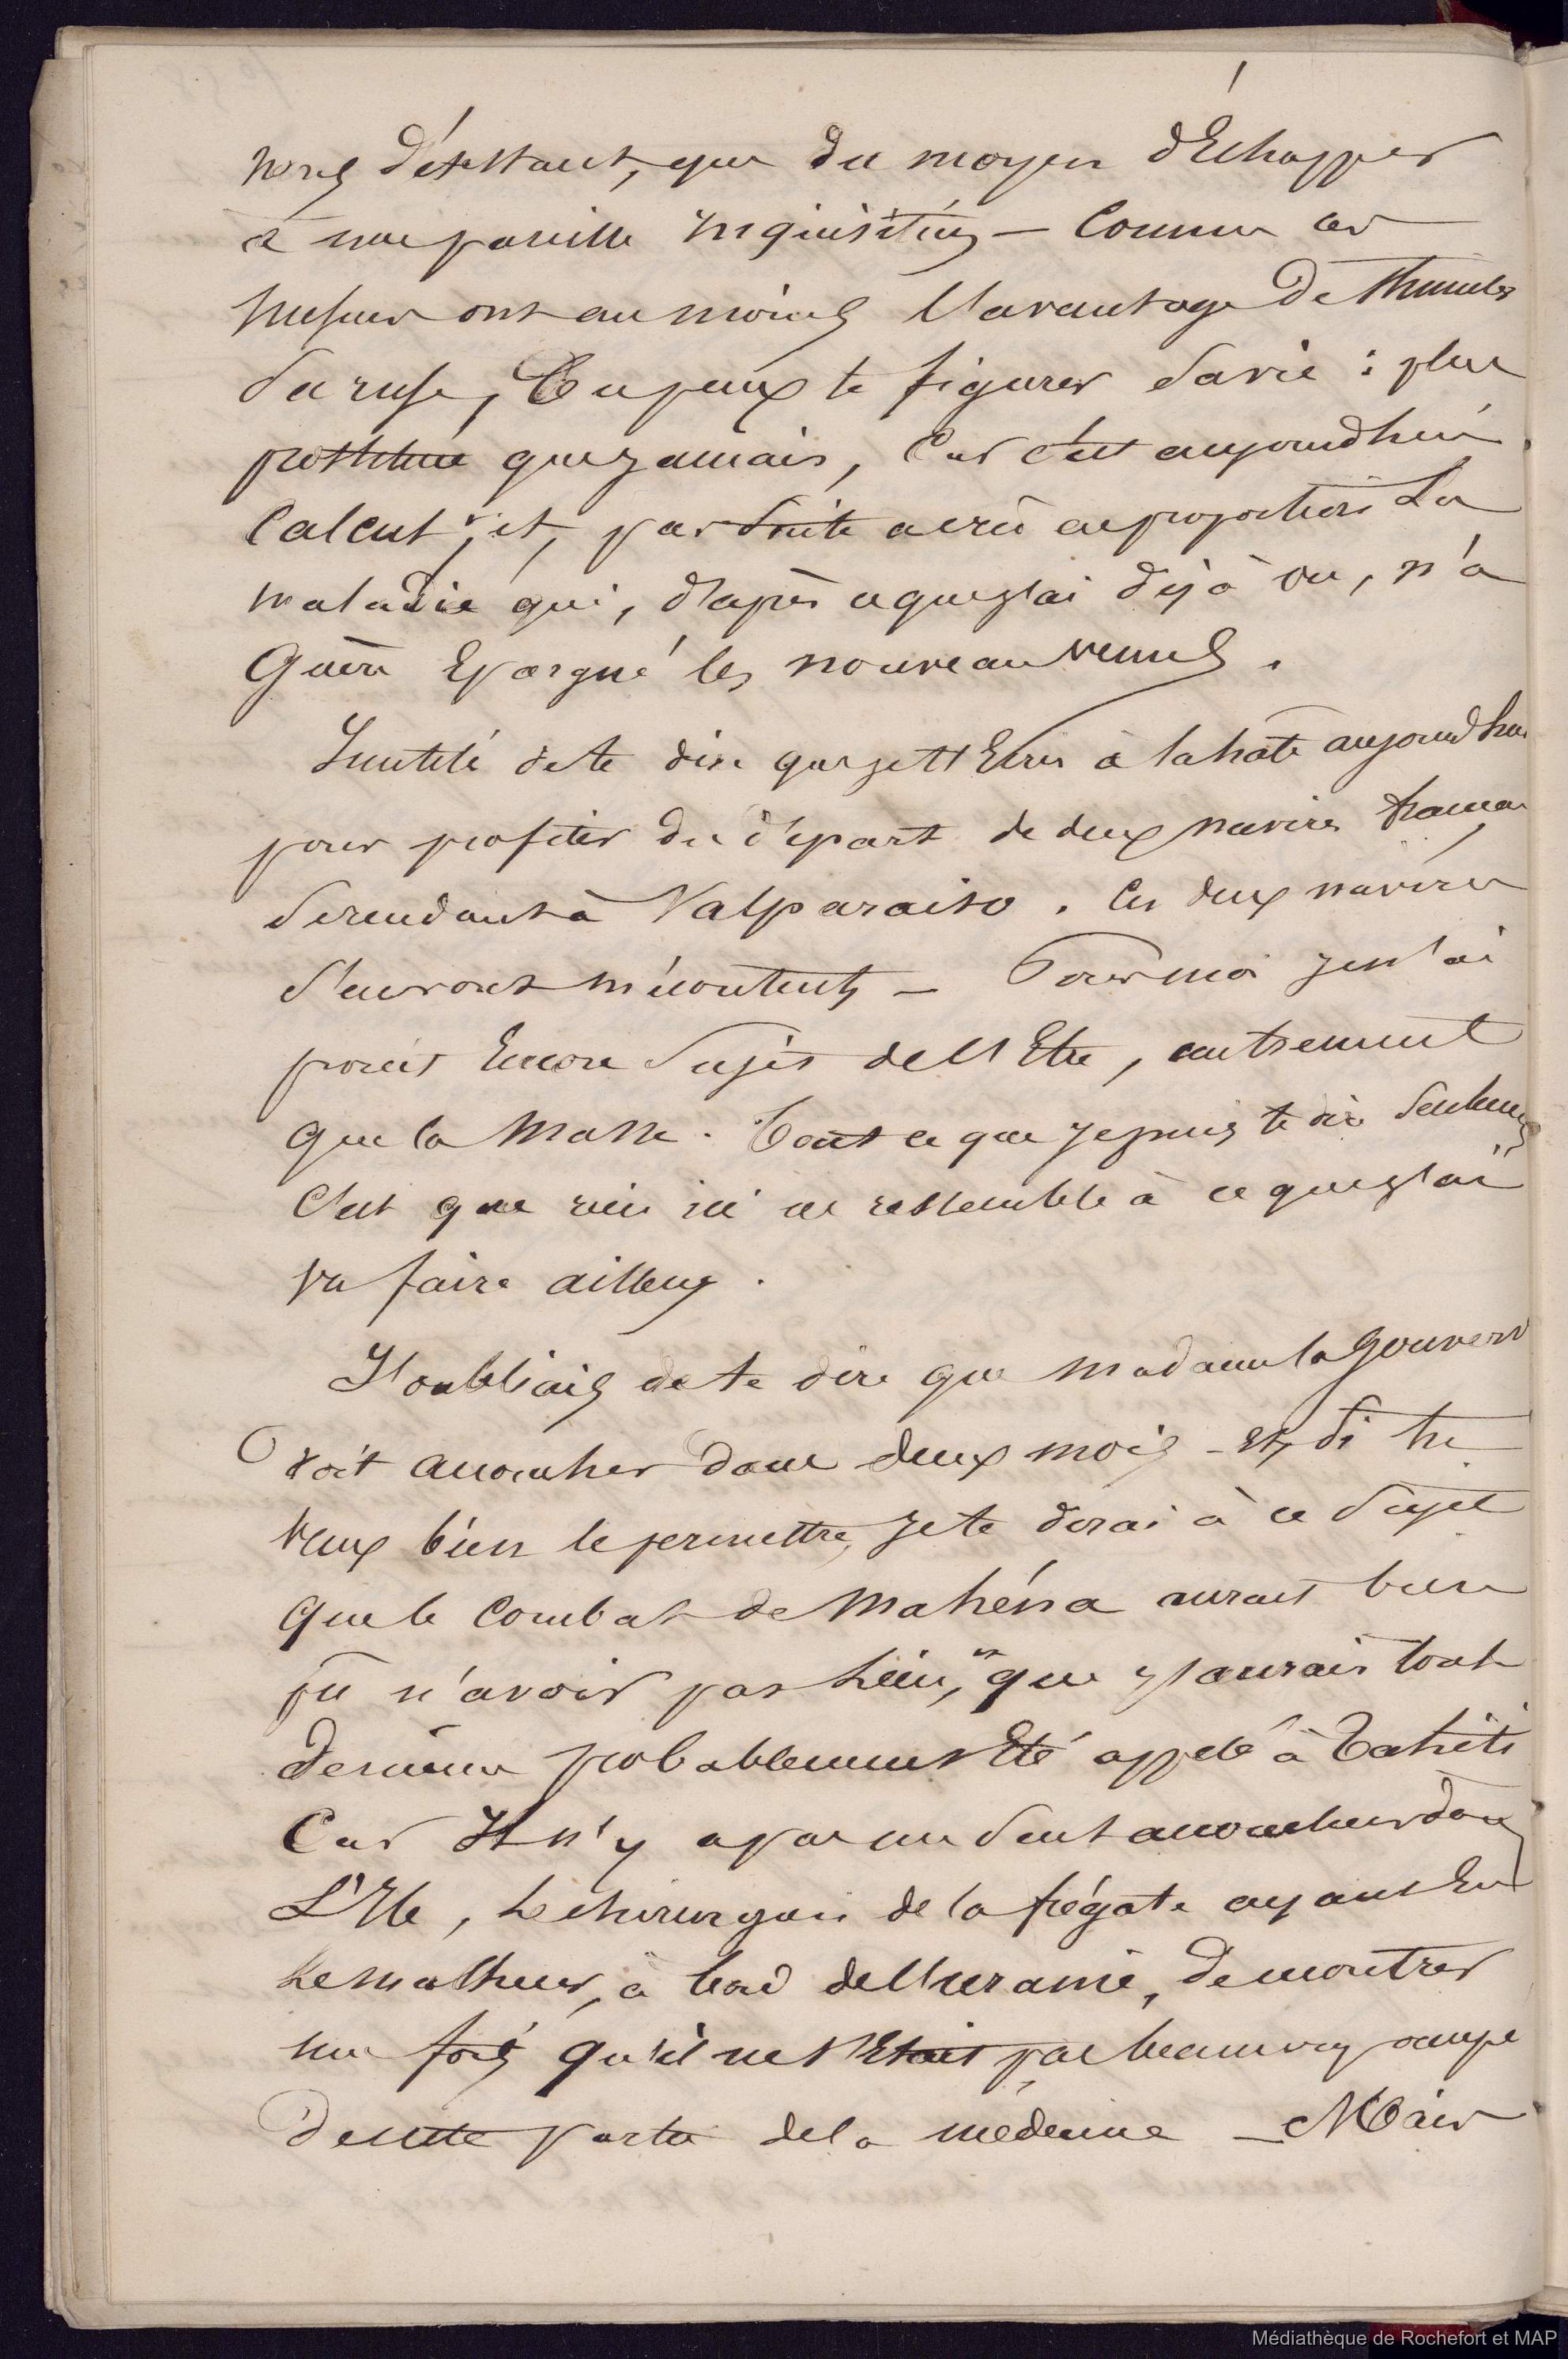 d'Existant, que du moyen d'Echapper
à une pareille inquisition — Comme ces
ont au moins l'avantage de
sa ruse, Tu peux te figurer sa vie : plus
prostituée que jamais, Car c'est aujourd'hui
Calcul ; et, par suite a crû en proportion La
maladie qui, d'après ce que j'ai déjà vu, n'a
Guère Epargné les nouveau venus.
Inutile de te dire que je t'Ecris à la hâte aujourd'hui
pour profiter du départ de deux navires français
se rendant à Valparaiso. Ces deux navires
s'en vont mécontents — Pour moi je n'ai
point Encore sujet de l'Etre, autrement
que la Masse. Tout ce que je puis te dire seulement
C'est que rien ici ne ressemble à ce que j'ai
vu faire ailleurs.
J'oubliais de te dire que Madame la Gouvern
doit accoucher dans deux mois - Et, si tu
veux bien le permettre, je te dirai à ce sujet
que le Combat de Mahéna aurait bien
pû n'avoir pas lieu, que j'aurais tout
de même probablement Eté appelé à Tahiti
Car Il n'y a pas un seul accoucheur dans
L'Ile, Le chirurgien de la frégate ayant Eu
Le malheur, à bord de l'uranie, de montrer
une fois qu'il ne s'Etait pas beaucoup occupé
de cette partie de la médecine — Mais
Médiathèque de Rochefort et MAP